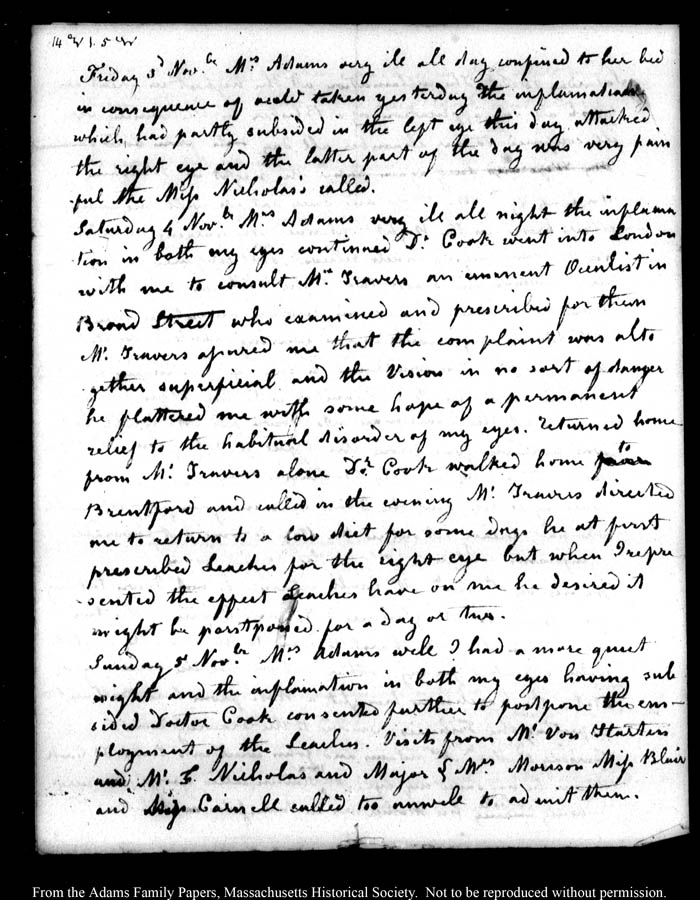 Friday 3d Nov.br Mrs Adams very ill all day confined to her bed
in consequence of cold taken yesterday the inflamation
which had partly subsided in the left eye this day attacked
the right eye and the latter part of the day was very pain
ful the Miss Nicholas's called.
Saturday 4 Nov.br Mrs Adams very ill all night the inflama
tion in both my eyes continued Dr Cook went into London
with me to consult Mr Travers an eminent Oculist in
Broad Street who examined and prescribed for them
Mr. Travers assured me that the complaint was alto
gether superficial and the Vision in no sort of danger
he flattered me with some hope of a permanent
relief to the habitual disorder of my eyes. returned home
from Mr. Travers alone Dr. Cook walked home to
Brentford and called in the evening Mr. Travers directed
me to return to a low diet for some days he at first
prescribed Leaches for the right eye but when I repre
sented the effect Leaches have on me he desired it
might be postponed for a day or two.
Sunday 5 Nov.br Mrs Adams well I had a more quiet
night and the inflamation in both my eyes having sub
sided Doctor Cook consented further to postpone the em-
ployment of the Leaches. Visits from Mr Von Harten
and Mr. Nicholas and Major & Mrs Morison Miss Blair
and Miss Carnell called too unwell to admit them.
From the Adams Family Papers, Massachusetts Historical Society. Not to be reproduced without permission.